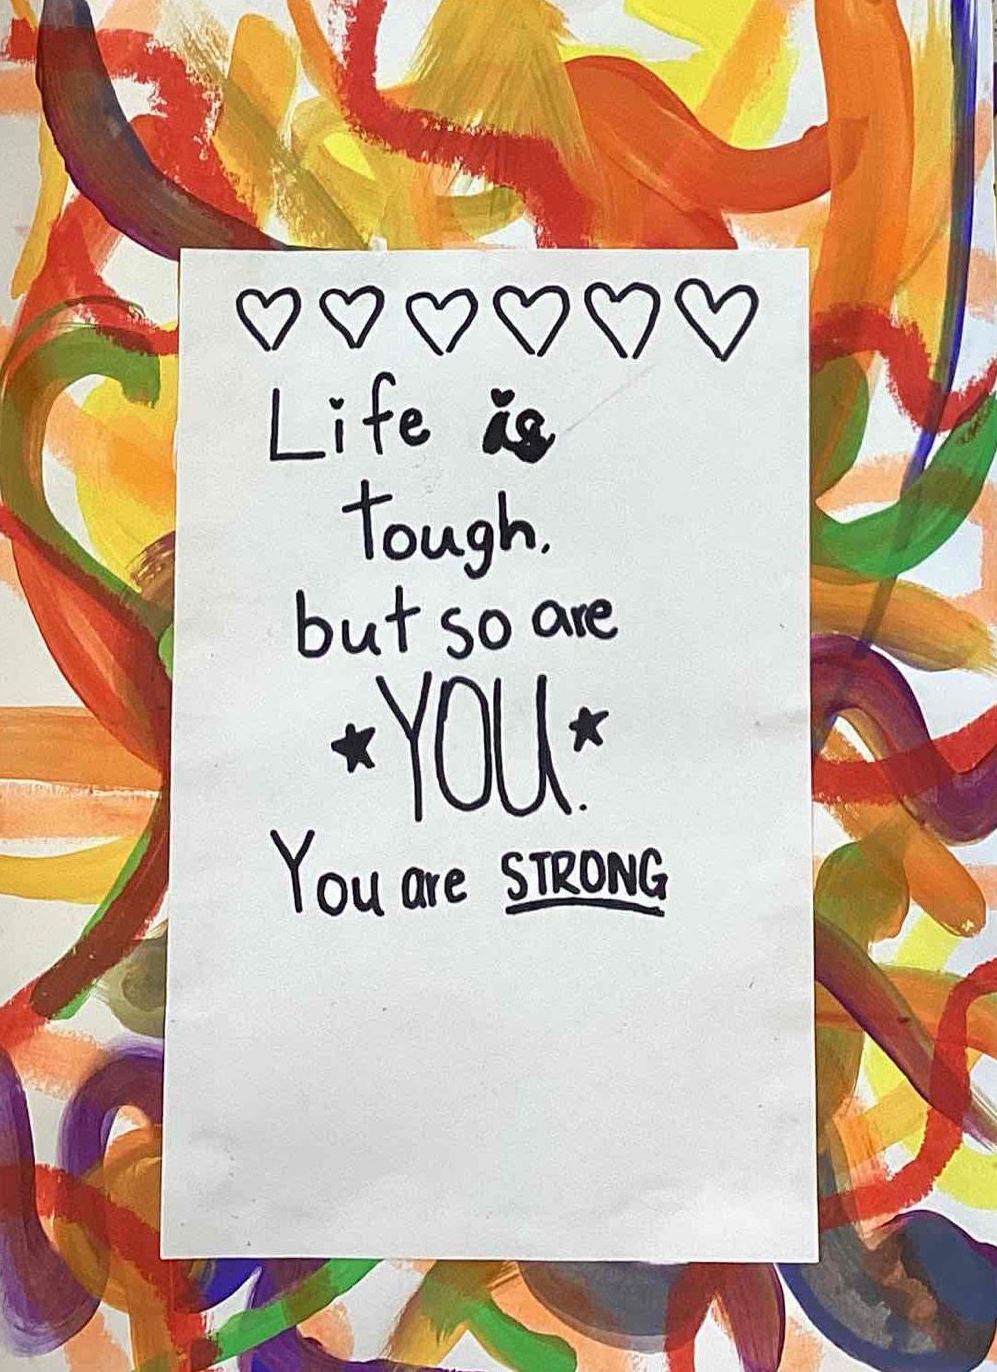 Life is
tough.
but so are
YOU.
You are STRONG